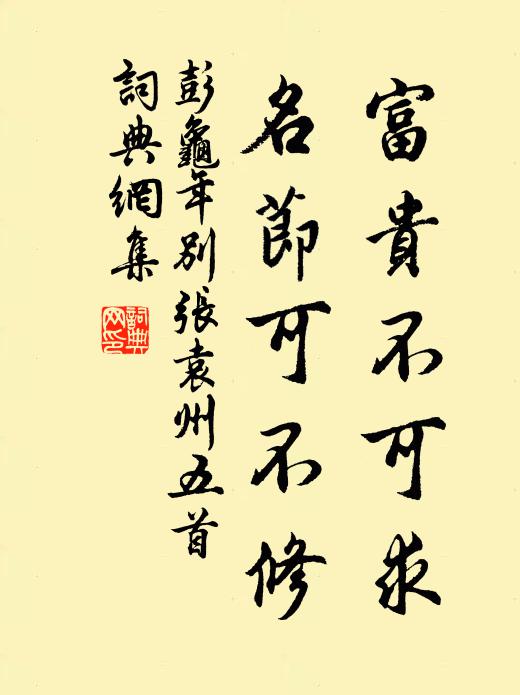 富貴不可求
名節可不修
彭龜年別張袁州五首
詞典網集
詞典
网印